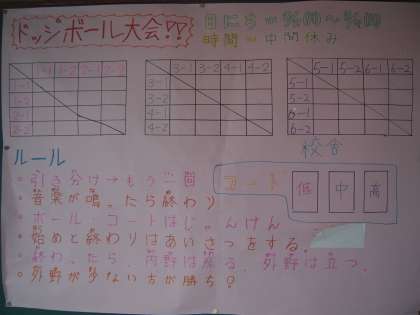 ドッジボール大会!!
日にち
時間 = 中間休み
3-1 3-2 4-1 4-2
3-1
3-2
4-1
4-2
5-1 5-2 6-1 6-2
5-1
5-2
6-1
6-2
校舎
ルール
引き分け→もう一回
音楽が鳴ったら終わり
ボール、コートはじゃんけん
始めと終わりはあいさつをする。
終わったら、内野は座る、外野は立つ。
外野が少ない方が勝ち?
コート
低 中 高